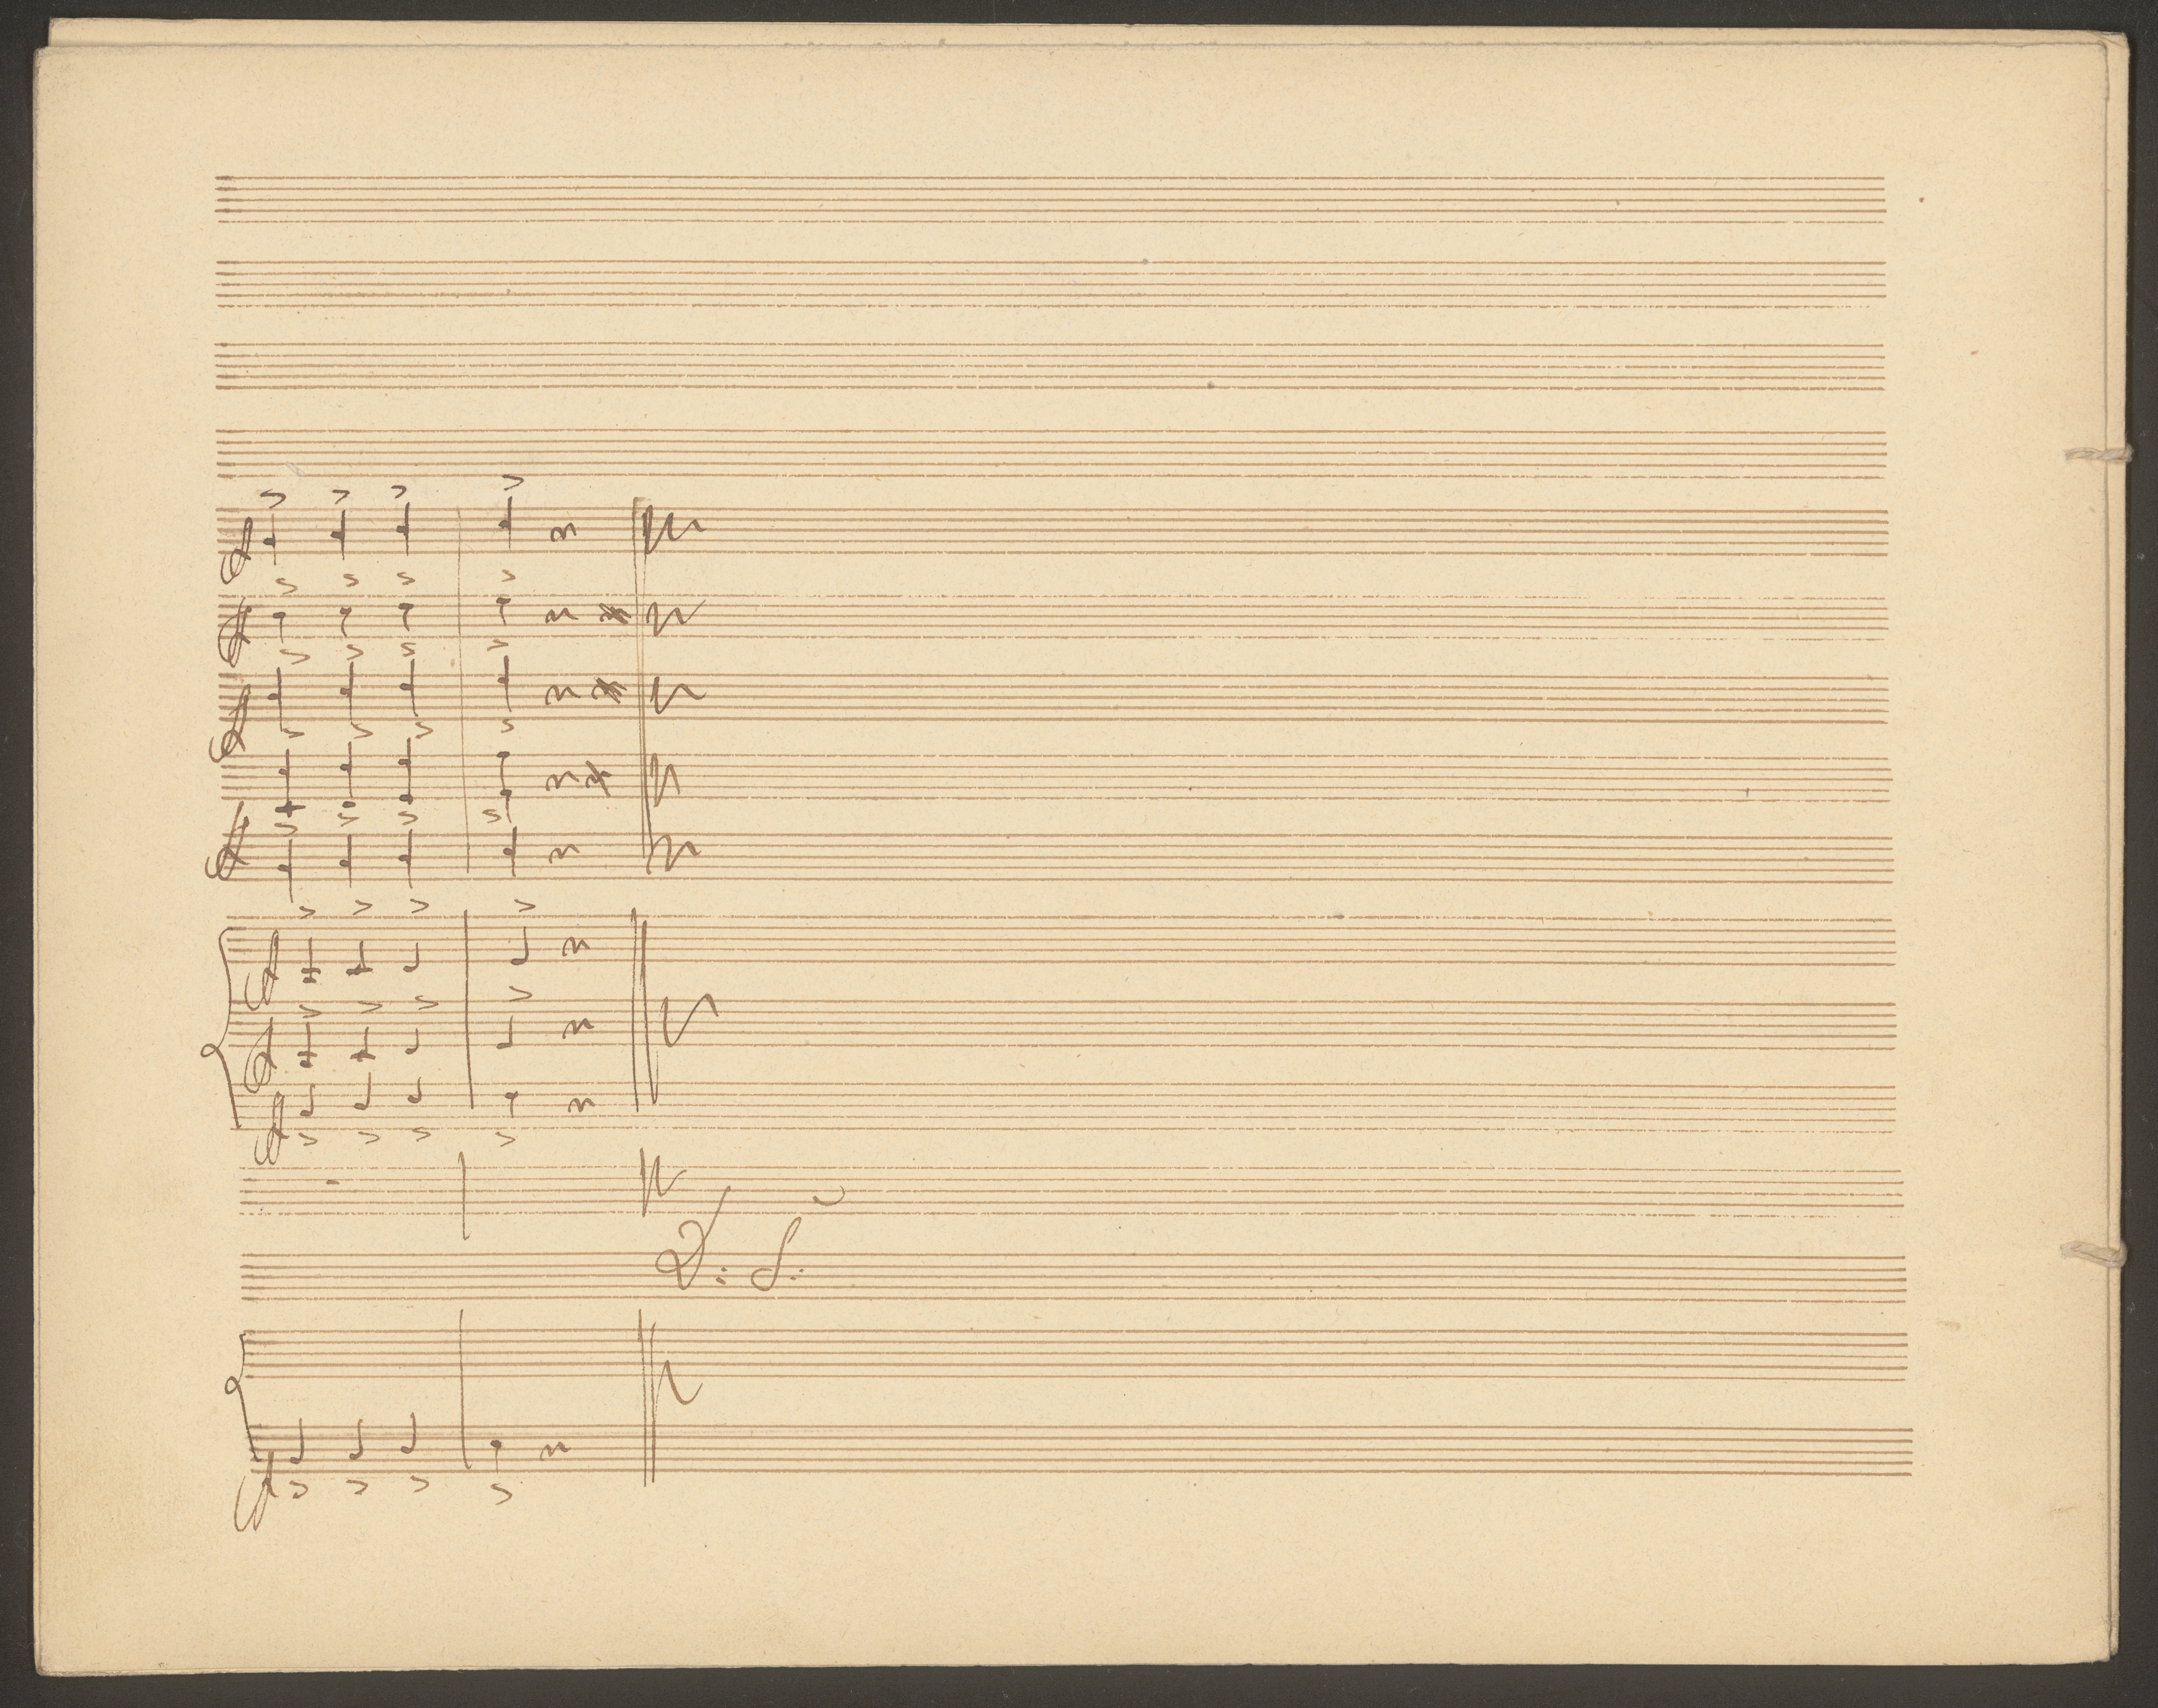 D. S.